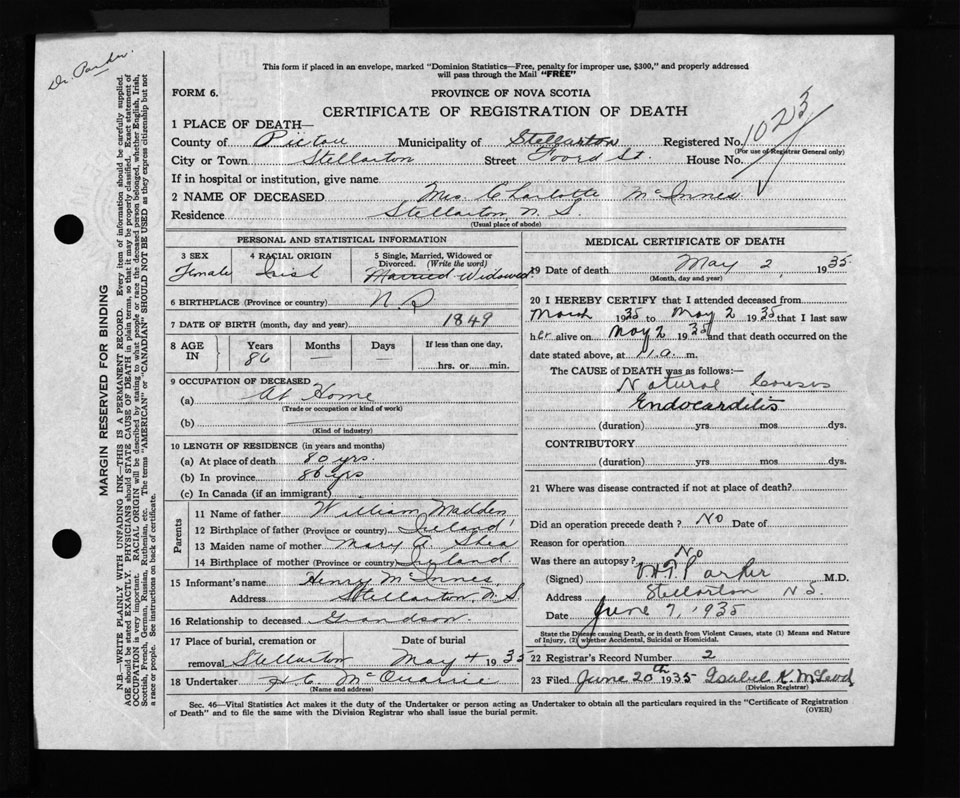 Dr. Parker.
This form if placed in an envelope, marked "Dominion Statistics—Free, penalty for improper use, $300," and properly addressed
will pass through the Mail "FREE"
FORM 6.
PROVINCE OF NOVA SCOTIA
CERTIFICATE OF REGISTRATION OF DEATH
1 PLACE OF DEATH—
County of Pictou Municipality of Stellarton Registered No. 1023
(For use of Registrar General only)
City or Town Stellarton Street Foord St. House No.
If in hospital or institution, give name
2 NAME OF DECEASED Mrs. Charlotte McInnes
Residence Stellarton, N.S.
(Usual place of abode)
PERSONAL AND STATISTICAL INFORMATION
3 SEX 4 RACIAL ORIGIN 5 Single, Married, Widowed or Divorced. (Write the word)
Female Irish Married Widowed
6 BIRTHPLACE (Province or country) N.S.
7 DATE OF BIRTH (month, day and year) 1849
8 AGE IN Years Months Days If less than one day,
86 — — hrs. or min.
9 OCCUPATION OF DECEASED
(a) At Home
(Trade or occupation or kind of work)
(b)
(Kind of industry)
10 LENGTH OF RESIDENCE (in years and months)
(a) At place of death 80 yrs.
(b) In province 86 yrs
(c) In Canada (if an immigrant)
Parents
11 Name of father William Madden
12 Birthplace of father (Province or country) Ireland
13 Maiden name of mother Mary A. Shea
14 Birthplace of mother (Province or country) Ireland.
15 Informant's name Henry McInnes.
Address Stellarton, N.S.
16 Relationship to deceased Grandson.
17 Place of burial, cremation or Date of burial
removal Stellarton May 4 1935
18 Undertaker H.C. McQuarrie
(Name and address)
MEDICAL CERTIFICATE OF DEATH
19 Date of death May 2, 1935
(Month, day and year)
20 I HEREBY CERTIFY that I attended deceased from
March 1935 to May 2 1935 that I last saw
her alive on May 2 1935 and that death occurred on the
date stated above, at a. m.
The CAUSE of DEATH was as follows:—
Natural Causes
Endocarditis
(duration) yrs mos dys.
CONTRIBUTORY
(duration) yrs mos dys.
21 Where was disease contracted if not at place of death?
Did an operation precede death? No Date of
Reason for operation
Was there an autopsy? No
(Signed) Parker M.D.
Address Stellarton N.S.
Date June 7, 1935
State the Disease causing Death, or in death from Violent Causes, state (1) Means and Nature
of Injury, (2) whether Accidental, Suicidal or Homicidal.
22 Registrar's Record Number 2
23 Filed June 20th 1935 Isabel K. McLeod
(Division Registrar)
Sec. 46—Vital Statistics Act makes it the duty of the Undertaker or person acting as Undertaker to obtain all the particulars required in the "Certificate of Registration
of Death" and to file the same with the Division Registrar who shall issue the burial permit. (OVER)
MARGIN RESERVED FOR BINDING
N.B.—WRITE PLAINLY WITH UNFADING INK—THIS IS A PERMANENT RECORD. Every item of information should be carefully supplied.
AGE should be stated EXACTLY. PHYSICIANS should STATE CAUSE OF DEATH in plain terms, so that it may be properly classified. Exact statement of
OCCUPATION is very important. RACIAL ORIGIN will be described by stating to what people or race the deceased person belonged, whether English, Irish,
Scottish, French, German, Russian, Ruthenian, etc. The terms "AMERICAN" or "CANADIAN" SHOULD NOT BE USED as they express citizenship but not
a race or people. See instructions on back of certificate.